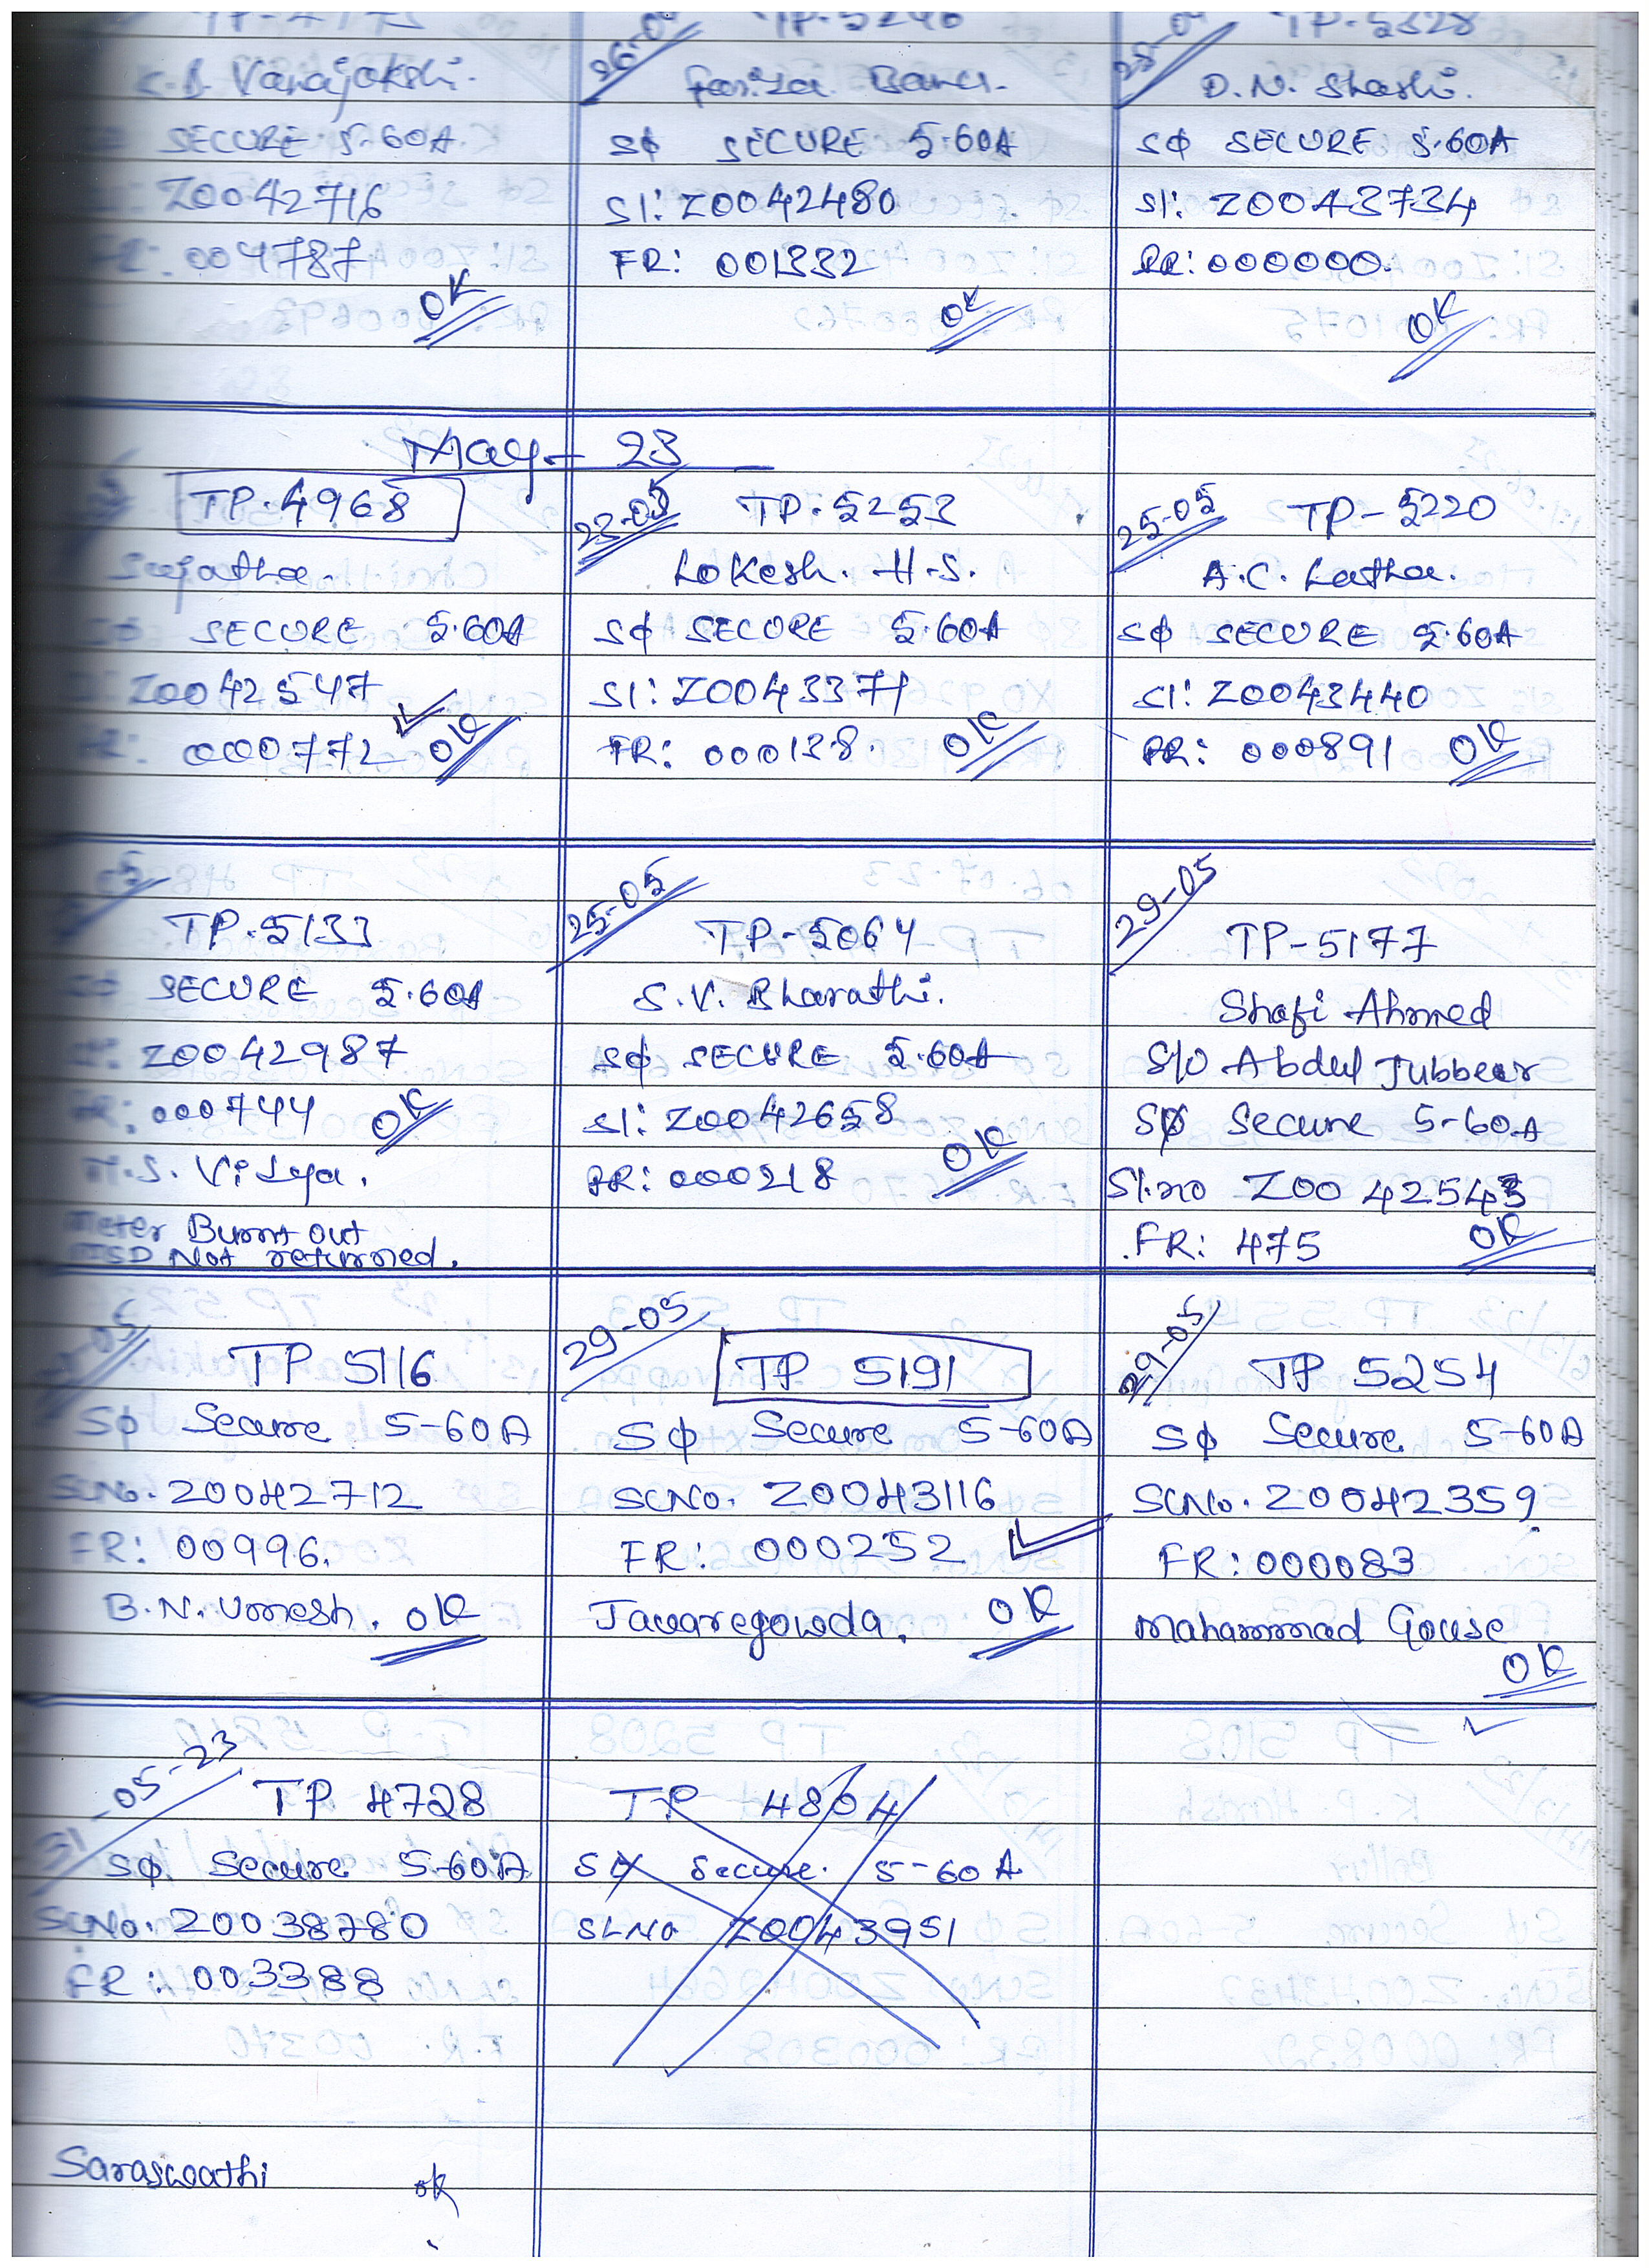 TP-5246
TP-5328
K.B. Vanajakshi.
26-0
Fariza Banu.
28-0
D.N. Shashi.
SECURE 5-60A
Z0042716
004787
OK
Sφ SECURE 5-60A
Sl: Z0042480
FR: 001332
OK
Sφ SECURE 5-60A
Sl: Z0043734
FR: 000000.
OK
May - 23
TP-4968
Sujatha.
SECURE 5-60A
Z0042547
FR: 000772 OK
23-05
TP-5253
Lokesh. H.S.
Sφ SECURE 5-60A
Sl: Z0043371
FR: 000138. OK
25-05
TP-5220
A.C. Latha.
Sφ SECURE 5-60A
Sl: Z0043440
FR: 000891 OK
TP-5133
SECURE 5-60A
Z0042987
FR: 000744 OK
H.S. Vidya.
Meter Burnt out
MSD Not returned.
25-05
TP-5064
S.V. Bharathi.
Sφ SECURE 5-60A
Sl: Z0042658
FR: 000218 OK
29-05
TP-5177
Shafi Ahmed
S/O Abdul Jubbear
Sφ Secure 5-60A
Sl.no Z0042543
FR: 475 OK
TP 5116
Sφ Secure 5-60A
SLNo. Z0042712
FR: 00996.
B.N. Umesh. OK
29-05
TP 5191
Sφ Secure 5-60A
SLNo. Z0043116
FR: 000252
Javaregowda. OK
29-05
TP 5254
Sφ Secure 5-60A
SLNo. Z0042359
FR: 000083
Mahammad Gouse
OK
31-05-23
TP 4728
Sφ Secure 5-60A
SLNo. Z0038780
FR: 003388
Saraswathi ok
TP 4804
Sφ Secure. 5-60A
SLNo Z0043951